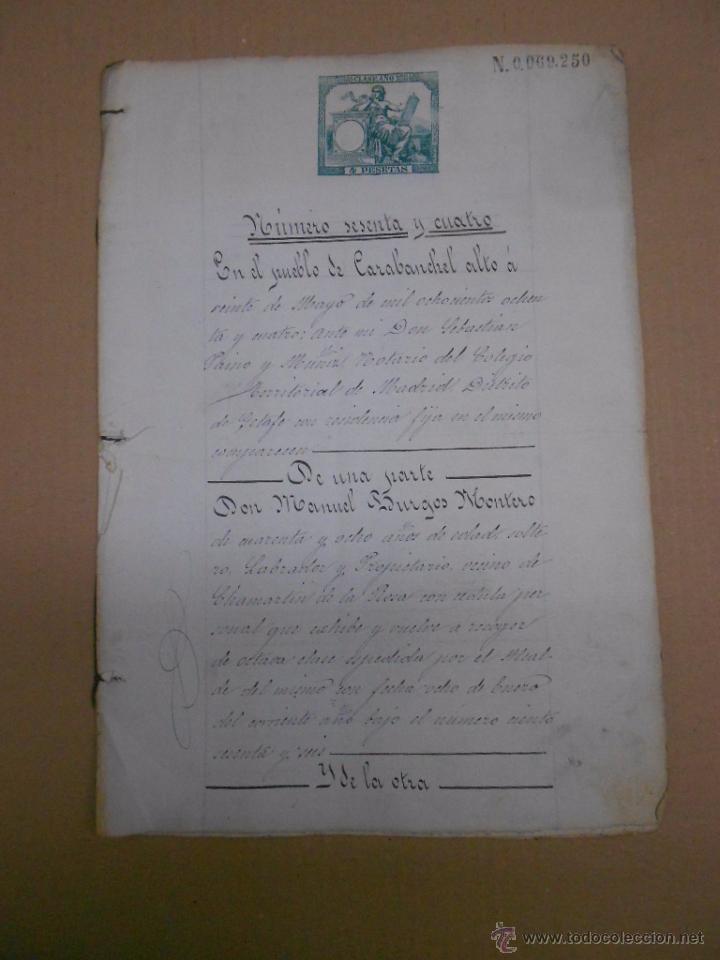 N.0,069.250
4 PESETAS
Número sesenta y cuatro
En el pueblo de Carabanchel alto á
veinte de Mayo de mil ochocienta ochen
ta y cuatro: ante mi Don Sebastian
y Muñiz Notario del Colegio
Territorial de Madrid, Distrito
de Getafe con residencia fija en el mismo
comparecen
De una parte
Don Manuel Burgos Montero
de cuarenta y ocho años de edad, solte
ro, Labrador y Propietario, vecino de
Chamartin de la Rosa con cédula per
sonal que exhibe y vuelve a recoger
de octava clase espedida por el Alcal
de del mismo con fecha ocho de Enero
del corriente año bajo el número ciento
sesenta y seis
Y de la otra
www.todocoleccion.net